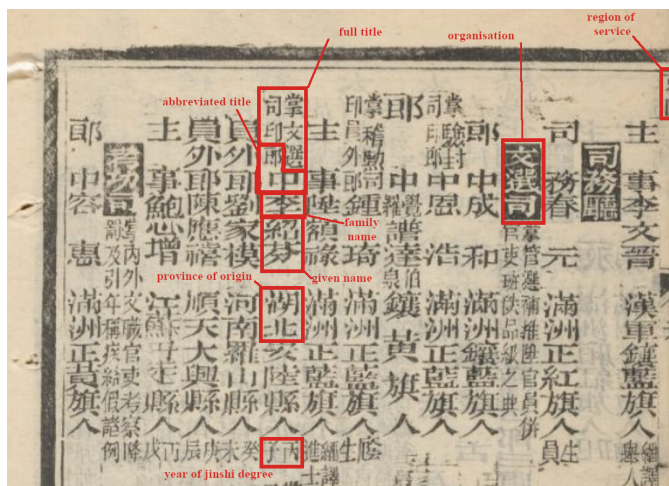 full title
organisation
region of
service
abbreviated title
family
name
given name
province of origin
year of jinshi degree
主事李文晋 漢軍鑲藍旗人 繙譯舉人
司務廳
司務春元 滿洲正紅旗人 生員
文選司 掌管選補推陞官員併官吏班秩品級之典
郎中成和 滿洲鑲藍旗人
掌驗封司印郎中恩浩 滿洲正藍旗人
郎中覺羅譜達 伯泉 鑲黃旗人
掌稽勳司印員外郎鍾琦 滿洲正藍旗人 廕生
主事隆祿 滿洲正藍旗人 繙譯進士
掌文選司印郎中李紹芬 湖北安陸縣人 丙子
員外郎劉家模 河南羅山縣人 癸未
員外郎陳應禧 順天大興縣人 庚辰
主事鮑恩增 江蘇丹徒縣人 丙戌
考功司 掌內外文職官吏考察降罰及引年稱疾給假諸例
郎中容惠 滿洲正藍旗人